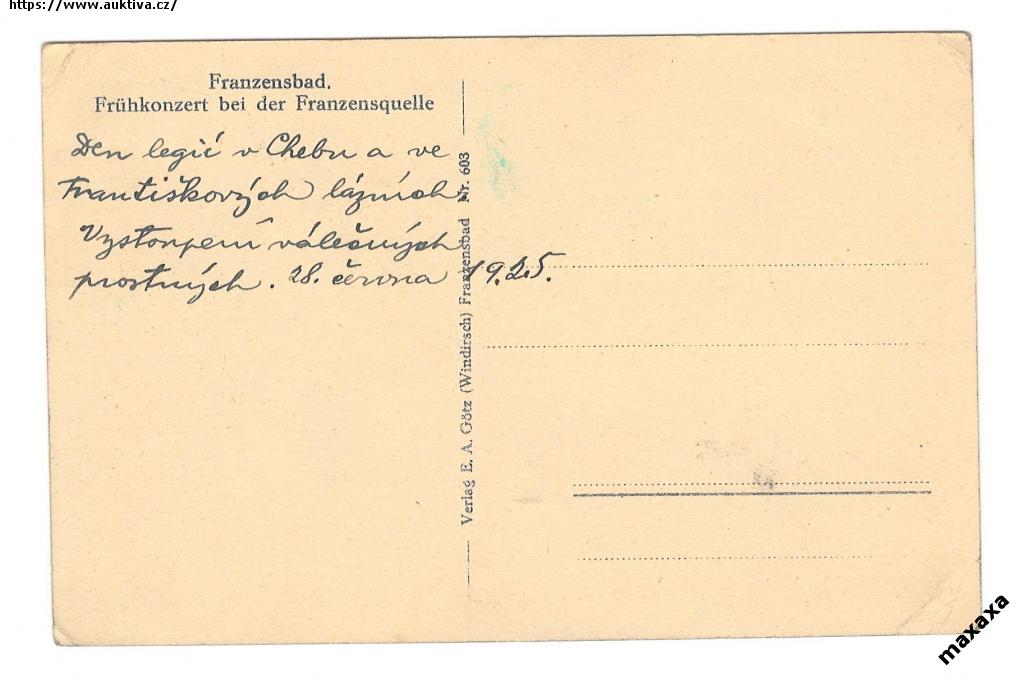 https://www.auktiva.cz/
Franzensbad.
Frühkonzert bei der Franzensquelle
Den legií v Chebu a ve
Františkových lázních
Vystoupení válečných
prostných. 28. června 1925.
Verlag E. A. Götz (Windirsch) Franzensbad Nr. 603
maxaxa